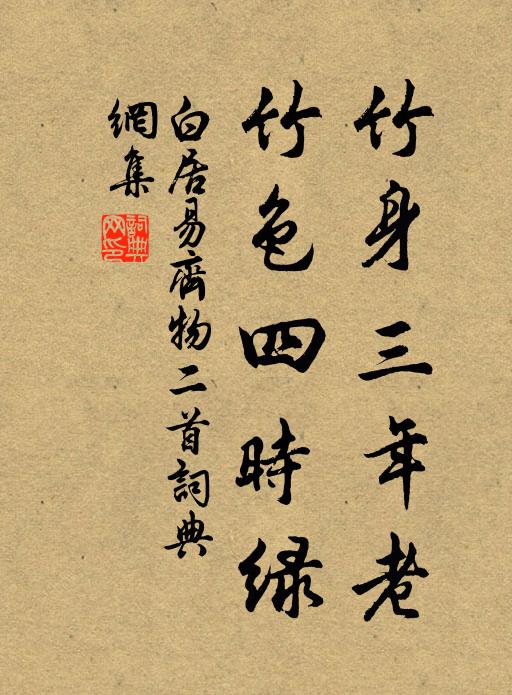 竹身三年老
竹色四時綠
白居易齊物二首詞典
網集
詞典
網印